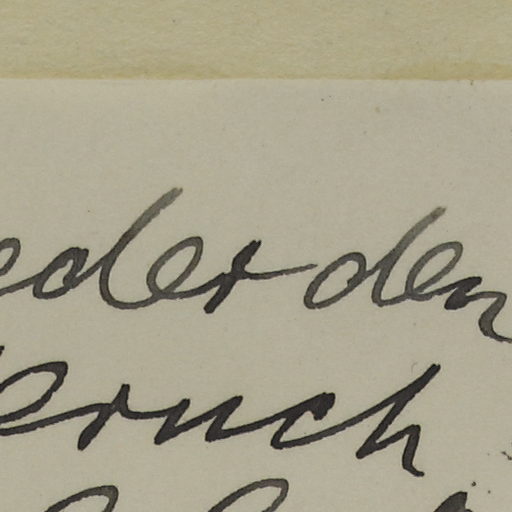 eder den
eruch